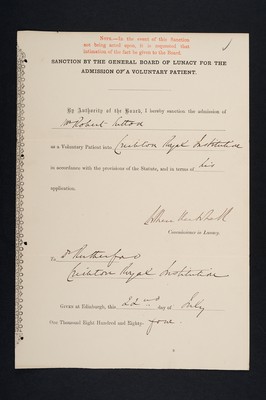 NOTE.—In the event of this Sanction
not being acted upon, it is requested that
intimation of the fact be given to the Board.
SANCTION BY THE GENERAL BOARD OF LUNACY FOR THE
ADMISSION OF A VOLUNTARY PATIENT.
By Authority of the Board, I hereby sanction the admission of
Mr Robert
as a Voluntary Patient into Crichton Royal Institution
in accordance with the provisions of the Statute, and in terms of his
application.
Commissioner in Lunacy.
To Dr Rutherford
Crichton Royal Institution
GIVEN at Edinburgh, this 22nd day of July
One Thousand Eight Hundred and Eighty-four.